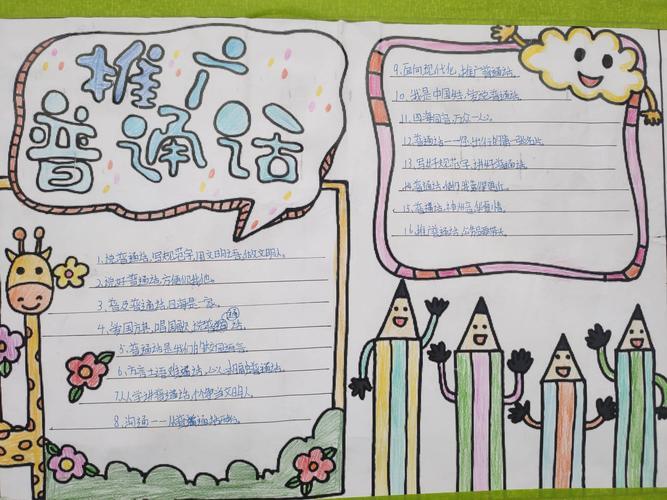 推广
普通话
1.说普通话,写规范字,用文明语,做文明人。
2.说好普通话,方便你我他。
3.普及普通话,四海是一家。
4.爱国旗,唱国歌,说普通话。
5.普通话是我们的校园语言。
6.方言土语难通话,心心相印普通话。
7.人人学讲普通话,个个争当文明人。
8.沟通——从普通话开始。
9.面向现代化,推广普通话。
10.我是中国娃,爱说普通话。
11.四海同音,万众一心。
12.普通话——你
13.写好规范字,讲好普通话。
14.普通话,使你我靠得更近。
15.普通话,神州音,华夏情。
16.推广普通话,